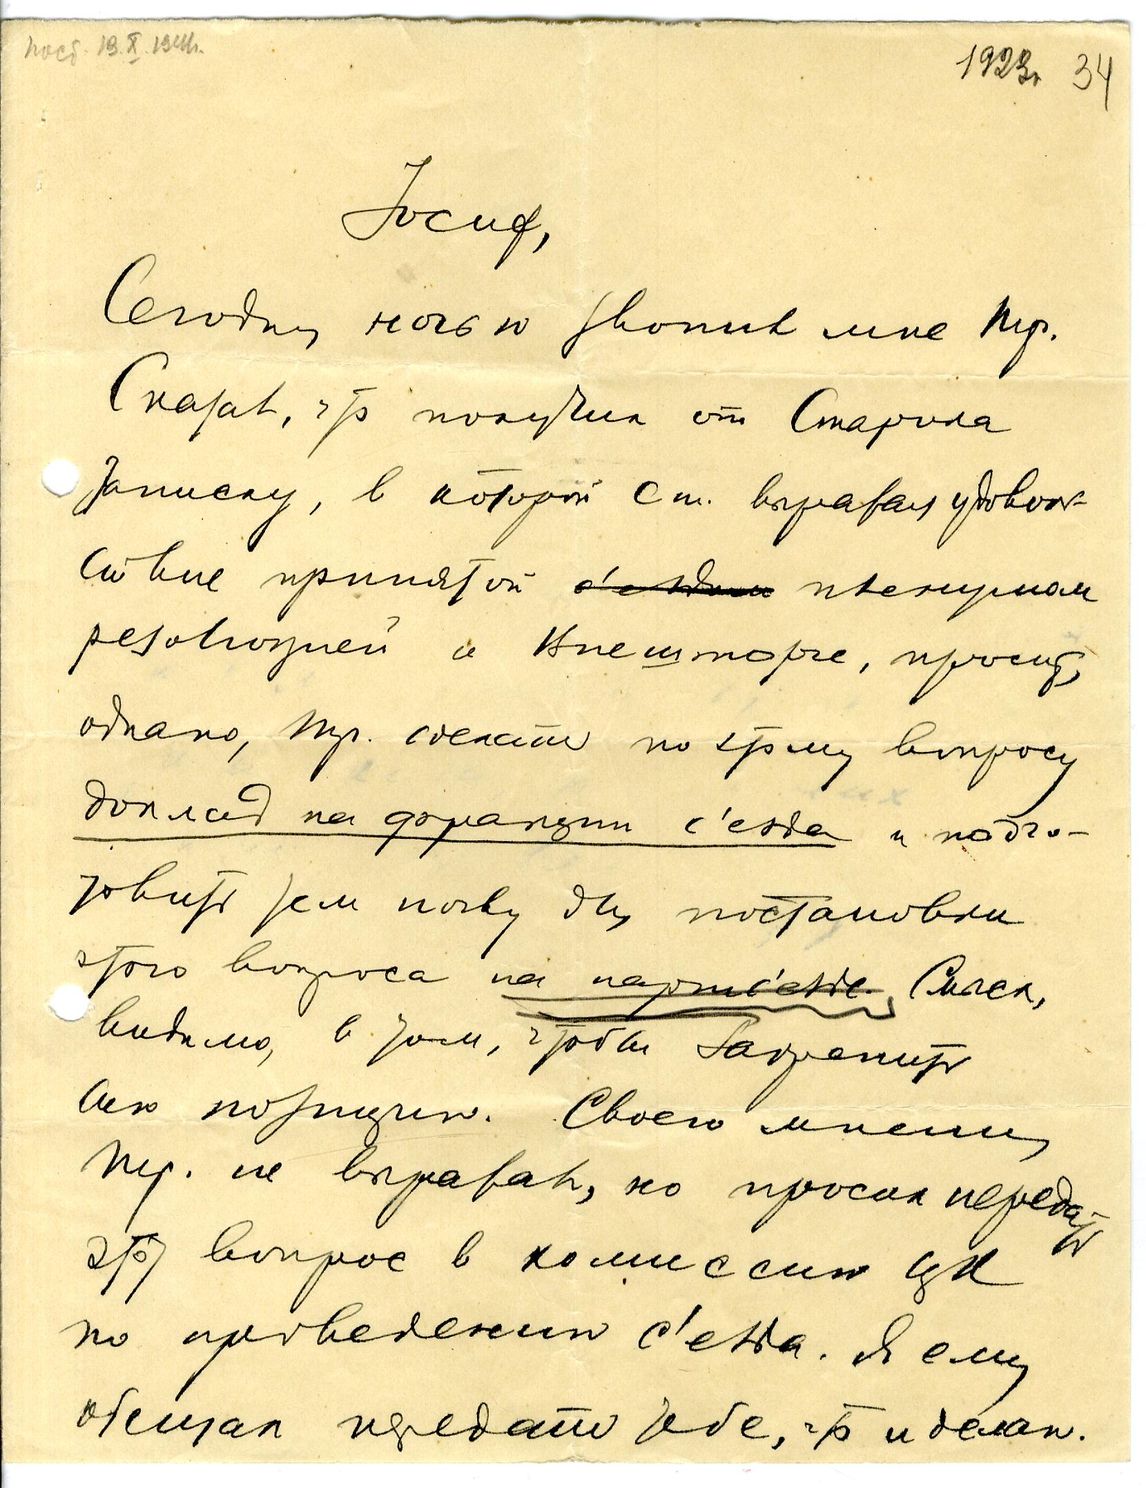 пост. 19.X.1941г.
1923г 34
Іосиф,
Сегодня ночью звонил мне Тр.
Сказал, что получил от Старика
записку, в которой Ст. выражая удоволь-
ствие принятой с'ездом пленумом
резолюцией о Внешторге, просит,
однако, Тр. сделать по этому вопросу
доклад на фракции с'езда и подго-
товить тем почву для постановки
этого вопроса на партс'езде. Смысл,
видимо, в том, чтобы закрепить
сию позицию. Своего мнения
Тр. не выражал, но просил передать
этот вопрос в комиссию ЦК
по проведению с'езда. Я ему
обещал передать тебе, что и делаю.